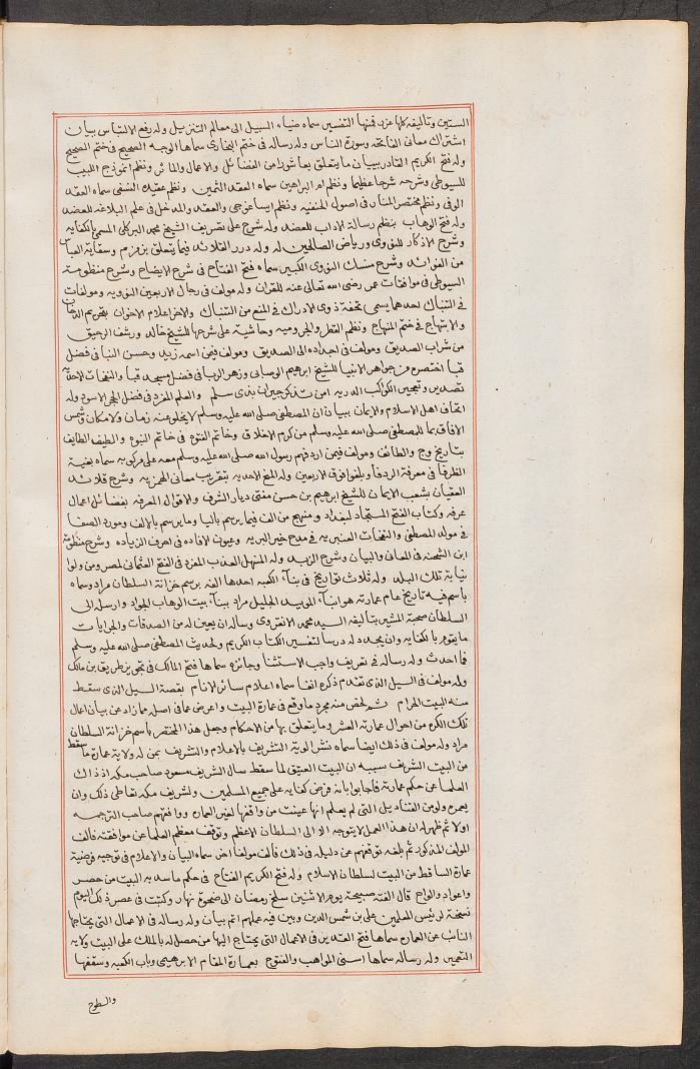 الستين وتآليفه كلها غرر فمنها التفسير سماه ضياء السبيل الى معالم التنزيل وله رفع الالتباس ببيان
اشتراك معانى الفاتحة وسورة الناس وله رسالة فى ختم البخارى سماها الوجه الصحيح فى ختم الصحيح
وله فتح الكريم القادر ببيان ما يتعلق بعاشورا من الفضائل والاعمال والمآثر ونظم انموذج اللبيب
للسيوطى وشرحه شرحا عظيما ونظم ام البراهين سماه العقد الثمين ونظم عقيدة النسفى سماه العقد
الوفى ونظم مختصر المنار فى اصول الحنفية ونظم ايساغوجى والعقد والمدخل فى علم البلاغة للعضد
وله فتح الوهاب بنظم رسالة الاداب للعضد وله شرح على تصريف الشيخ محمد البركلى المسمى بالكفاية
وشرح الاذكار للنووى ورياض الصالحين له وله درر القلائد فيما يتعلق بزمزم وسقاية العباس
من الفوائد وشرح منسك النووى الكبير سماه فتح الفتاح فى شرح الايضاح وشرح منظومة
السيوطى فى موافقات عمر رضى الله تعالى عنه للقران وله مولف فى رجال الاربعين النووية ومولفات
فى التنباك احدهما يسمى تحفة ذوى الادراك فى المنع من التنباك والاخر اعلام الاخوان بتحريم الدخان
والابتهاج فى ختم المنهاج ونظم القطر والجرومية وحاشية على شرحها للشيخ خالد ورشف الرحيق
من شراب الصديق ومولف فى اجداده الى الصديق ومولف فيمن اسمه زيد وحسن النبا فى فضل
قبا اختصره من جواهر الانبا للشيخ ابرهيم الوصابى وزهر الربا فى فضل مسجد قبا والنفحات الاحدية
تصدير وتعجيز الكواكب الدرية امن تذكر جيران بذى سلم والعلم المفرد فى فضل الحجر الاسود وله
اتحاف اهل الاسلام والايمان ببيان ان المصطفى صلى الله عليه وسلم لا يخلو عنه زمان ولا مكان وشمس
الافاق بما للمصطفى صلى الله عليه وسلم من كرم الاخلاق وخاتم الفتوة فى خاتم النبوة والطيف الطايف
بتاريخ وج والطائف ومولف فيمن اردفهم رسول الله صلى الله عليه وسلم معه على مركوبه سماه بغية
الظرفا فى معرفة الردفا وبلغوا فوق الاربعين وله المنح الاحدية بتقريب معانى الهمزية وشرح قلائد
العقيان بشعب الايمان للشيخ ابرهيم بن حسن مفتى ديار الشرف والاقوال المعرفه بفضائل اعمال
عرفه وكتاب الفتح المستجاد لبغداد ومنهج من الف فيما يرسم باليا وما يرسم بالالف ومورد الصفا
فى مولد المصطفى والنفحات العنبرية فى مدح خير البرية وعيون الافاده فى احرف الزياده وشرح منظومة
ابن الشحنه فى المعانى والبيان وشرح الزبد وله المنهل العذب المفرد فى الفتح العثمانى لمصر ومن ولوا
نيابة تلك البلد وله ثلاث تواريخ فى بنآء الكعبه احدها الفه برسم خزانة السلطان مراد وسماه
باسم فيه تاريخ عام عمارته هو انبآء المويد الجليل مراد ببنآء بيت الوهاب الجواد وارسله الى
السلطان صحبة المشير بتاليفه السيد محمد الانقروى وساله ان يعين له من الصدقات والجرايات
ما يقوم بالكفاية وان يجدد له درسا لتفسير الكتاب الكريم ولحديث المصطفى صلى الله عليه وسلم
فما احدث وله رسالة فى تعريف واجب الاستثنا وجائزه سماها فتح المالك فى تجويز طريق بن مالك
وله مولف فى السيل الذى تقدم ذكره انفا سماه اعلام سائر الانام بقصة السيل الذى سقط
منه البيت الحرام ثم لخص منه مجرد ما وقع فى عمارة البيت واعرض عما فى اصله مما زاد عن بيان اعمال
تلك الكره من احوال عمارته العشر وما يتعلق بها من الاحكام وجعل هذا المختصر باسم خزانة السلطان
مراد وله مولف فى ذلك ايضا سماه نشر الوية التشريف بالاعلام والتعريف بمن له ولاية عمارة ما سقط
من البيت الشريف سببه ان البيت العتيق لما سقط سال الشريف مسعود صاحب مكه اذ ذاك
العلما عن حكم عمارته فاجابوا بانه فرض كفاية على جميع المسلمين ولشريف مكه تعاطى ذلك وان
يعمره ولو من القناديل التى لم يعلم انها عينت من واقفها لغير العماره ووافقهم صاحب الترجمه
اولا ثم ظهر له ان هذا العمل لا يتوجه الا الى السلطان الاعظم وتوقف معظم العلما عن موافقته فالف
المولف المذكور ثم بلغه توقفهم عن دليله فى ذلك فالف مولفا اخر سماه البيان والاعلام فى توجيه فرضية
عمارة الساقط من البيت لسلطان الاسلام وله فتح الكريم الفتاح فى حكم ما سد به البيت من حصر
واعواد والواح قال الفته صبيحة يوم الاثنين سلخ رمضان الى ضحوة نهار وكتبت فى عصر ذلك اليوم
نسخة لرئيس المعلمين على بن شمس الدين وبين فيه عملهم اتم بيان وله رساله فى الاعمال التى يحتاجها
النائب عن العماره سماها فتح القدير فى الاعمال التى يحتاج اليها من حصل له بالملك على البيت ولاية
التعمير وله رساله سماها اسنى المواهب والفتوح بعمارة المقام الابرهيمى وباب الكعبه وسقفها
والسطوح